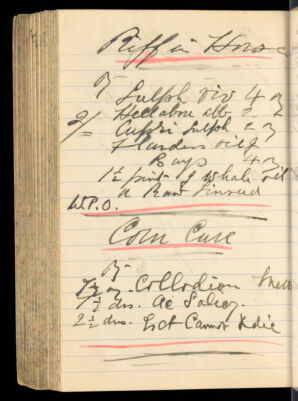 Riff in Horse
Sulph viv 4 oz
2/ Hellabore alb 2 oz
Cupri Sulph 2 oz
Flanders oil of
Bays 4 oz
1½ pint of whale oil
a Raw Linseed
W.P.O.
Corn Cure
7½ oz. Collodion
7½ drs. Ac Salicy.
2½ drs. Ext Cannab Indic